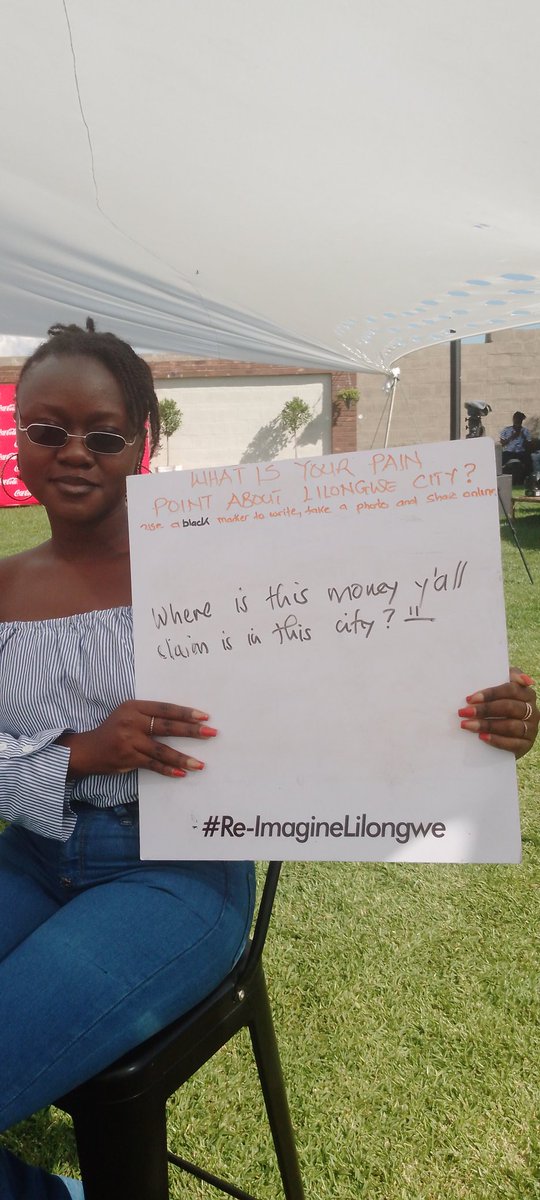 WHAT IS YOUR PAIN
POINT ABOUT LILONGWE CITY?
use a black marker to write, take a photo and share online
Where is this money y'all
claim is in this city?
#Re-ImagineLilongwe
Coca-Cola